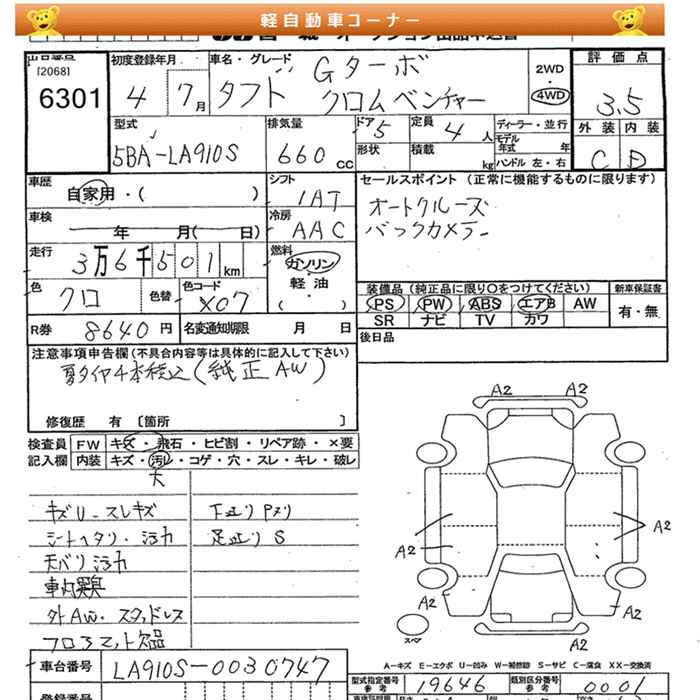 軽自動車コーナー
出品番号
[2068]
6301
初度登録年月
4 7月
車名・グレード
タフト Gターボ
クロムベンチャー
2WD
4WD
評価点
3.5
外装 内装
C D
型式
5BA-LA910S
排気量
660 CC
ドア 5
形状
定員 4 人
積載 kg
ディーラー・並行
モデル年式 年
ハンドル 左・右
車歴
自家用・( )
シフト
IAT
車検
年 月( 日)
冷房
AAC
走行
3万6千501km
燃料
ガソリン
・
軽油
( )
色
クロ
色替
色コード
X07
R券 8640円
名変通知期限 月 日
セールスポイント(正常に機能するものに限ります)
オートクルーズ
バックカメラー
装備品(純正品に限り○をつけてください)
PS PW ABS エアB AW
SR ナビ TV カワ
新車保証書
有・無
後日品
注意事項申告欄(不具合内容等は具体的に記入して下さい)
夏タイヤ4本積込(純正AW)
修復歴 有 〔箇所 〕
検査員 FW キズ・飛石・ヒビ割・リペア跡・×要
記入欄 内装 キズ・汚レ・コゲ・穴・スレ・キレ・破レ
大
キズU-スレキズ
シートヘタリ・汚れ
天バリ汚れ
車内異臭
外AW.スタッドレス
フロアマット欠品
下廻りPヌリ
足廻りS
A2 A2
A2
A2
A2
A2
A2
スペア
A-キズ E-エクボ U-凹み W-補修跡 S-サビ C-腐食 XX-交換済
車台番号 LA910S-0030747
型式指定番号
参考
19646
類別区分番号
参考
0001
登録番号